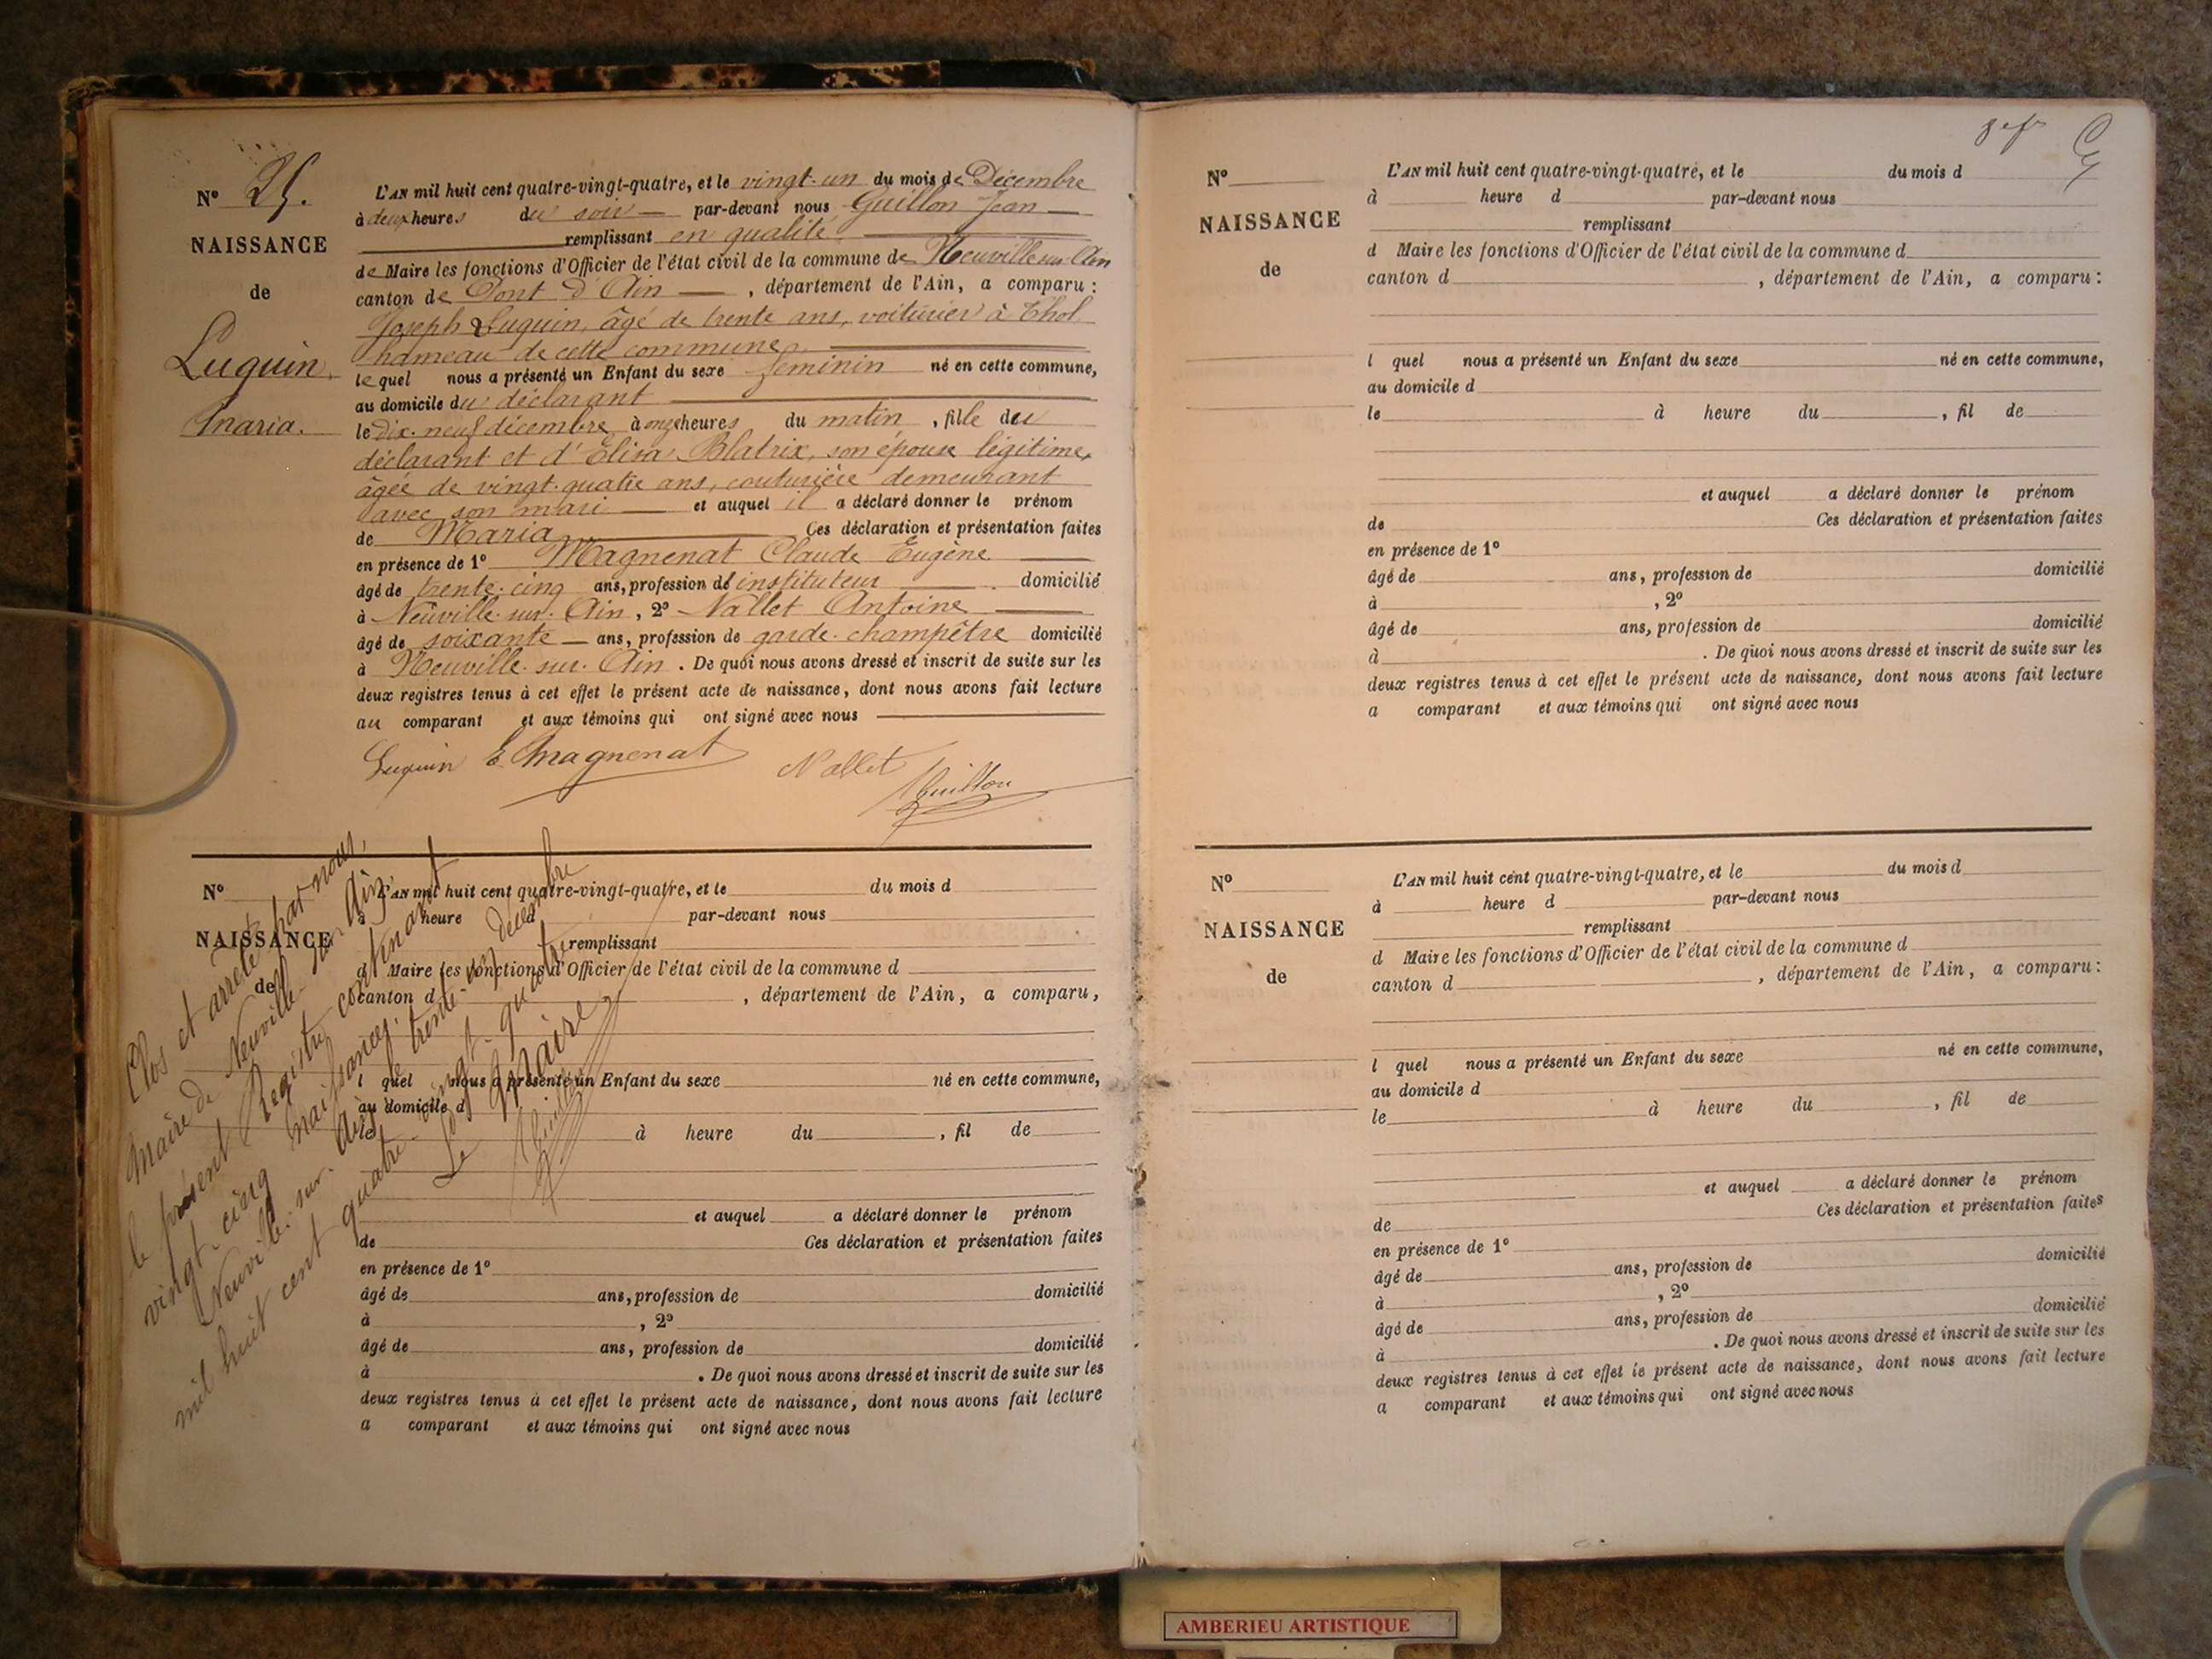 N° 25.
NAISSANCE
de
Luquin
Maria.
L'AN mil huit cent quatre-vingt-quatre, et le vingt-un du mois de Décembre
à deux heures du soir — par-devant nous Guillon Jean —
remplissant en qualité
de Maire les fonctions d'Officier de l'état civil de la commune de Neuville sur Ain
canton de Pont d'Ain — , département de l'Ain, a comparu :
Joseph Luquin, âgé de trente ans, voiturier à Thol
hameau de cette commune,
le quel nous a présenté un Enfant du sexe féminin né en cette commune,
au domicile du déclarant
le dix-neuf décembre à onze heures du matin , fille du
déclarant et d'Elisa Blatrix, son épouse légitime,
âgée de vingt-quatre ans, couturière demeurant
avec son mari — et auquel il a déclaré donner le prénom
de Maria Ces déclaration et présentation faites
en présence de 1° Magnenat Claude Eugène
âgé de trente-cinq ans, profession de instituteur domicilié
à Neuville-sur-Ain , 2° Nallet Antoine
âgé de soixante — ans, profession de garde-champêtre domicilié
à Neuville-sur-Ain . De quoi nous avons dressé et inscrit de suite sur les
deux registres tenus à cet effet le présent acte de naissance, dont nous avons fait lecture
au comparant et aux témoins qui ont signé avec nous
Luquin E. Magnenat Nallet Guillon
N°
NAISSANCE
de
L'AN mil huit cent quatre-vingt-quatre, et le du mois d
à heure d par-devant nous
remplissant
d Maire les fonctions d'Officier de l'état civil de la commune d
canton d , département de l'Ain, a comparu,
l quel nous a présenté un Enfant du sexe né en cette commune,
au domicile d
le à heure du , fil de
et auquel a déclaré donner le prénom
de Ces déclaration et présentation faites
en présence de 1°
âgé de ans, profession de domicilié
à , 2°
âgé de ans, profession de domicilié
à . De quoi nous avons dressé et inscrit de suite sur les
deux registres tenus à cet effet le présent acte de naissance, dont nous avons fait lecture
a comparant et aux témoins qui ont signé avec nous
Clos et arrêté par nous,
Maire de Neuville-sur-Ain,
le présent Registre contenant
vingt-cinq naissances.
Neuville-sur-Ain, le trente-un décembre
mil huit cent quatre-vingt-quatre
Le Maire
Guillon
N°
NAISSANCE
de
L'AN mil huit cent quatre-vingt-quatre, et le du mois d
à heure d par-devant nous
remplissant
d Maire les fonctions d'Officier de l'état civil de la commune d
canton d , département de l'Ain, a comparu :
l quel nous a présenté un Enfant du sexe né en cette commune,
au domicile d
le à heure du , fil de
et auquel a déclaré donner le prénom
de Ces déclaration et présentation faites
en présence de 1°
âgé de ans, profession de domicilié
à , 2°
âgé de ans, profession de domicilié
à . De quoi nous avons dressé et inscrit de suite sur les
deux registres tenus à cet effet le présent acte de naissance, dont nous avons fait lecture
a comparant et aux témoins qui ont signé avec nous
N°
NAISSANCE
de
L'AN mil huit cent quatre-vingt-quatre, et le du mois d
à heure d par-devant nous
remplissant
d Maire les fonctions d'Officier de l'état civil de la commune d
canton d , département de l'Ain, a comparu :
l quel nous a présenté un Enfant du sexe né en cette commune,
au domicile d
le à heure du , fil de
et auquel a déclaré donner le prénom
de Ces déclaration et présentation faites
en présence de 1°
âgé de ans, profession de domicilié
à , 2°
âgé de ans, profession de domicilié
à . De quoi nous avons dressé et inscrit de suite sur les
deux registres tenus à cet effet le présent acte de naissance, dont nous avons fait lecture
a comparant et aux témoins qui ont signé avec nous
AMBERIEU ARTISTIQUE